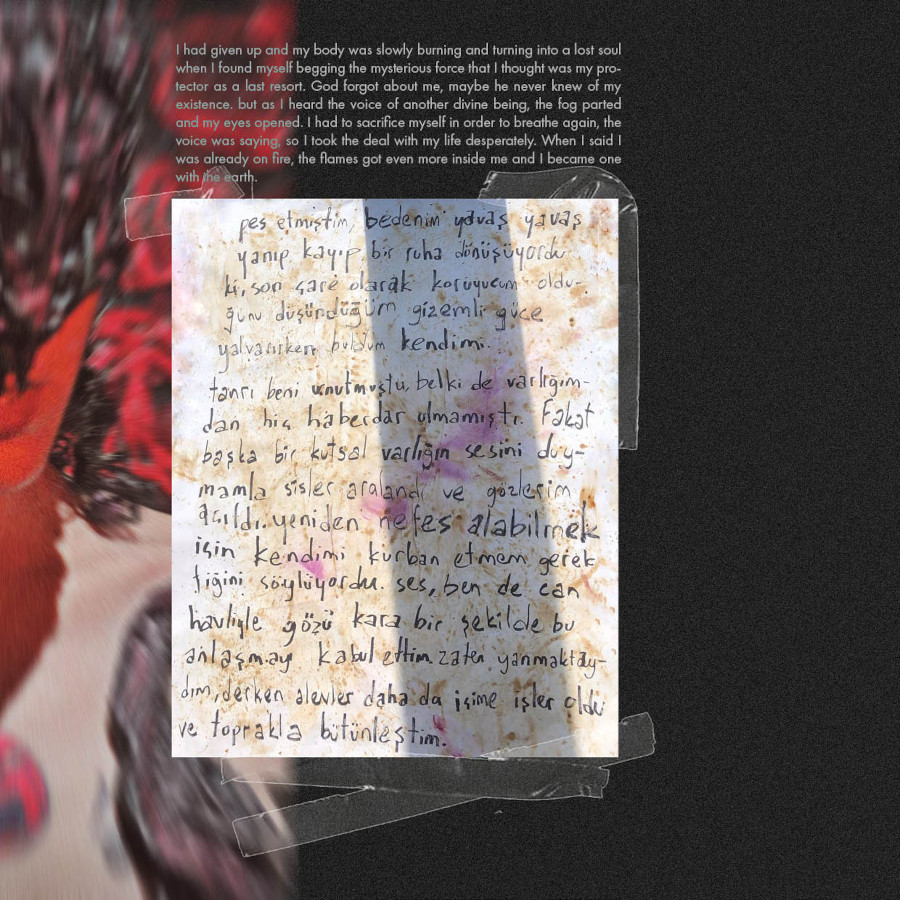 I had given up and my body was slowly burning and turning into a lost soul
when I found myself begging the mysterious force that I thought was my pro-
tector as a last resort. God forgot about me, maybe he never knew of my
existence. but as I heard the voice of another divine being, the fog parted
and my eyes opened. I had to sacrifice myself in order to breathe again, the
voice was saying, so I took the deal with my life desperately. When I said I
was already on fire, the flames got even more inside me and I became one
with the earth.
pes etmiştim, bedenim yavaş yavaş
yanıp kayıp bir ruha dönüşüyordu
ki, son çare olarak koruyucum oldu-
ğunu düşündüğüm gizemli güce
yalvarırken buldum kendimi.
tanrı beni unutmuştu, belki de varlığım-
dan hiç haberdar olmamıştı. Fakat
başka bir kutsal varlığın sesini duy-
mamla sisler aralandı ve gözlerim
açıldı. yeniden nefes alabilmek
için kendimi kurban etmem gerek
tiğini söylüyordu ses, ben de can
havliyle gözü kara bir şekilde bu
anlaşmayı kabul ettim. zaten yanmaktay-
dım, derken alevler daha da içime işler oldu
ve toprakla bütünleştim.